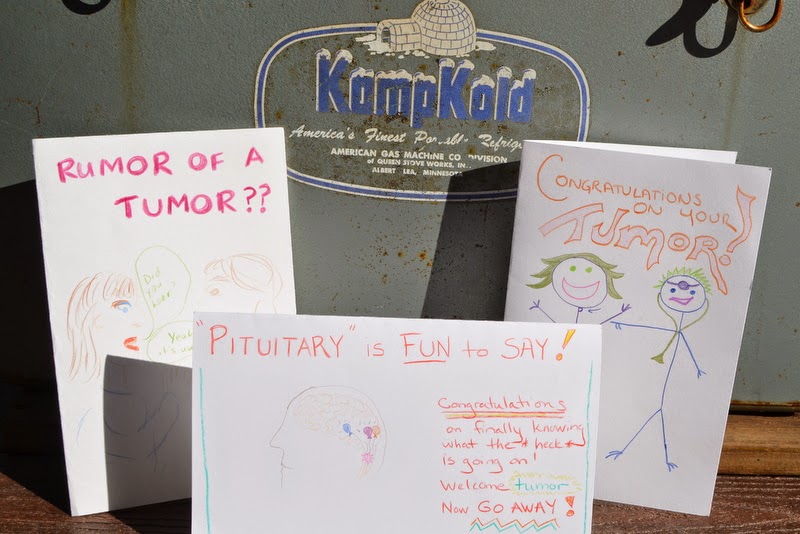 KampKold
America's Finest
AMERICAN GAS MACHINE CO. DIVISION
of QUEEN STOVE WORKS, INC.
ALBERT LEA, MINNESOTA
RUMOR OF A
TUMOR??
Did
you
hear?
Yeah
it's
CONGRATULATIONS
ON YOUR
TUMOR!
"PITUITARY" is FUN to SAY!
Congratulations
on finally knowing
what the *heck*
is going on!
Welcome tumor
Now GO AWAY!